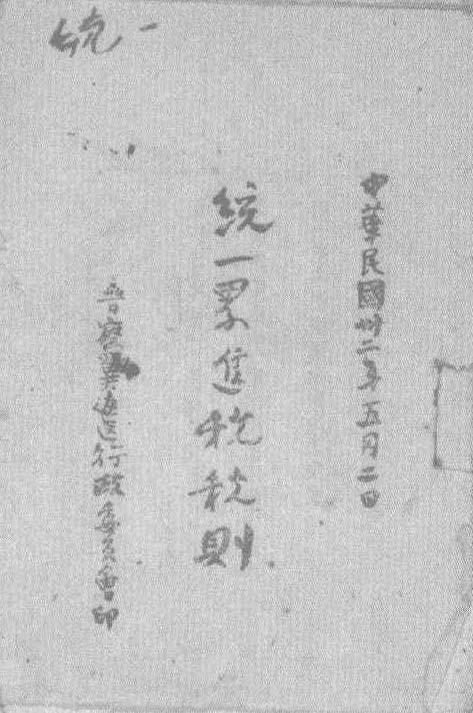 统一
中華民國卅二年五月二日
統一累進税税則
晉察冀边区行政委员會印